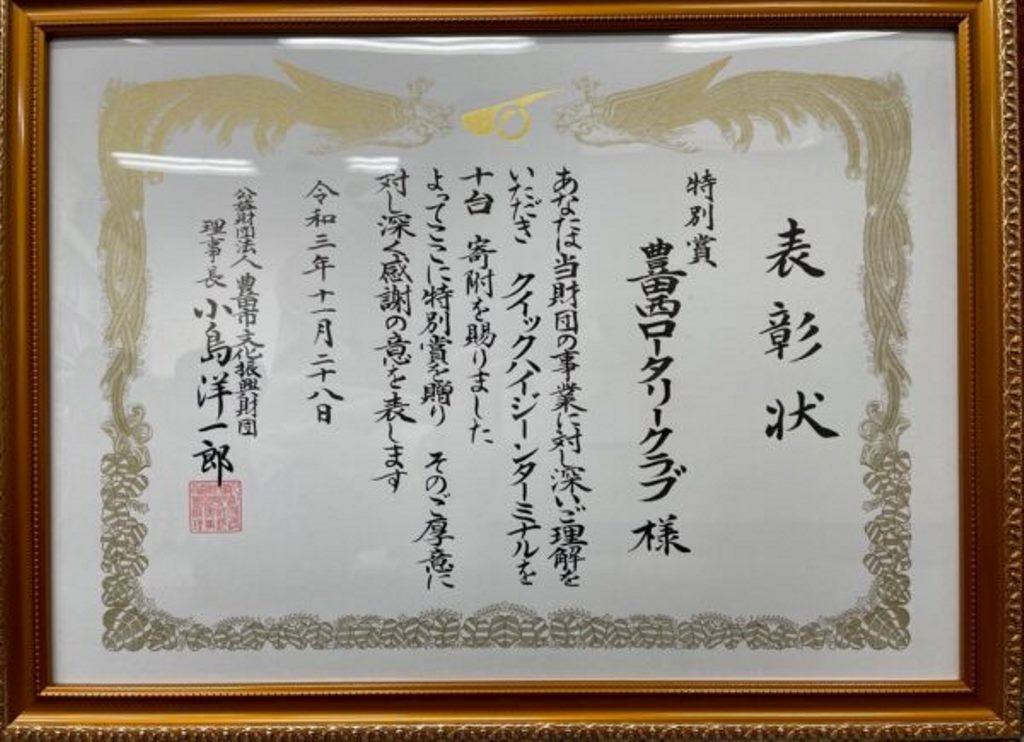 表彰状
特別賞
豊田西ロータリークラブ 様
あなたは当財団の事業に対し深いご理解を
いただき クイックハイジーンターミナルを
十台 寄附を賜りました
よってここに特別賞を贈り そのご厚意に
対し深く感謝の意を表します
令和三年十一月二十八日
公益財団法人 豊田市文化振興財団
理事長 小島洋一郎